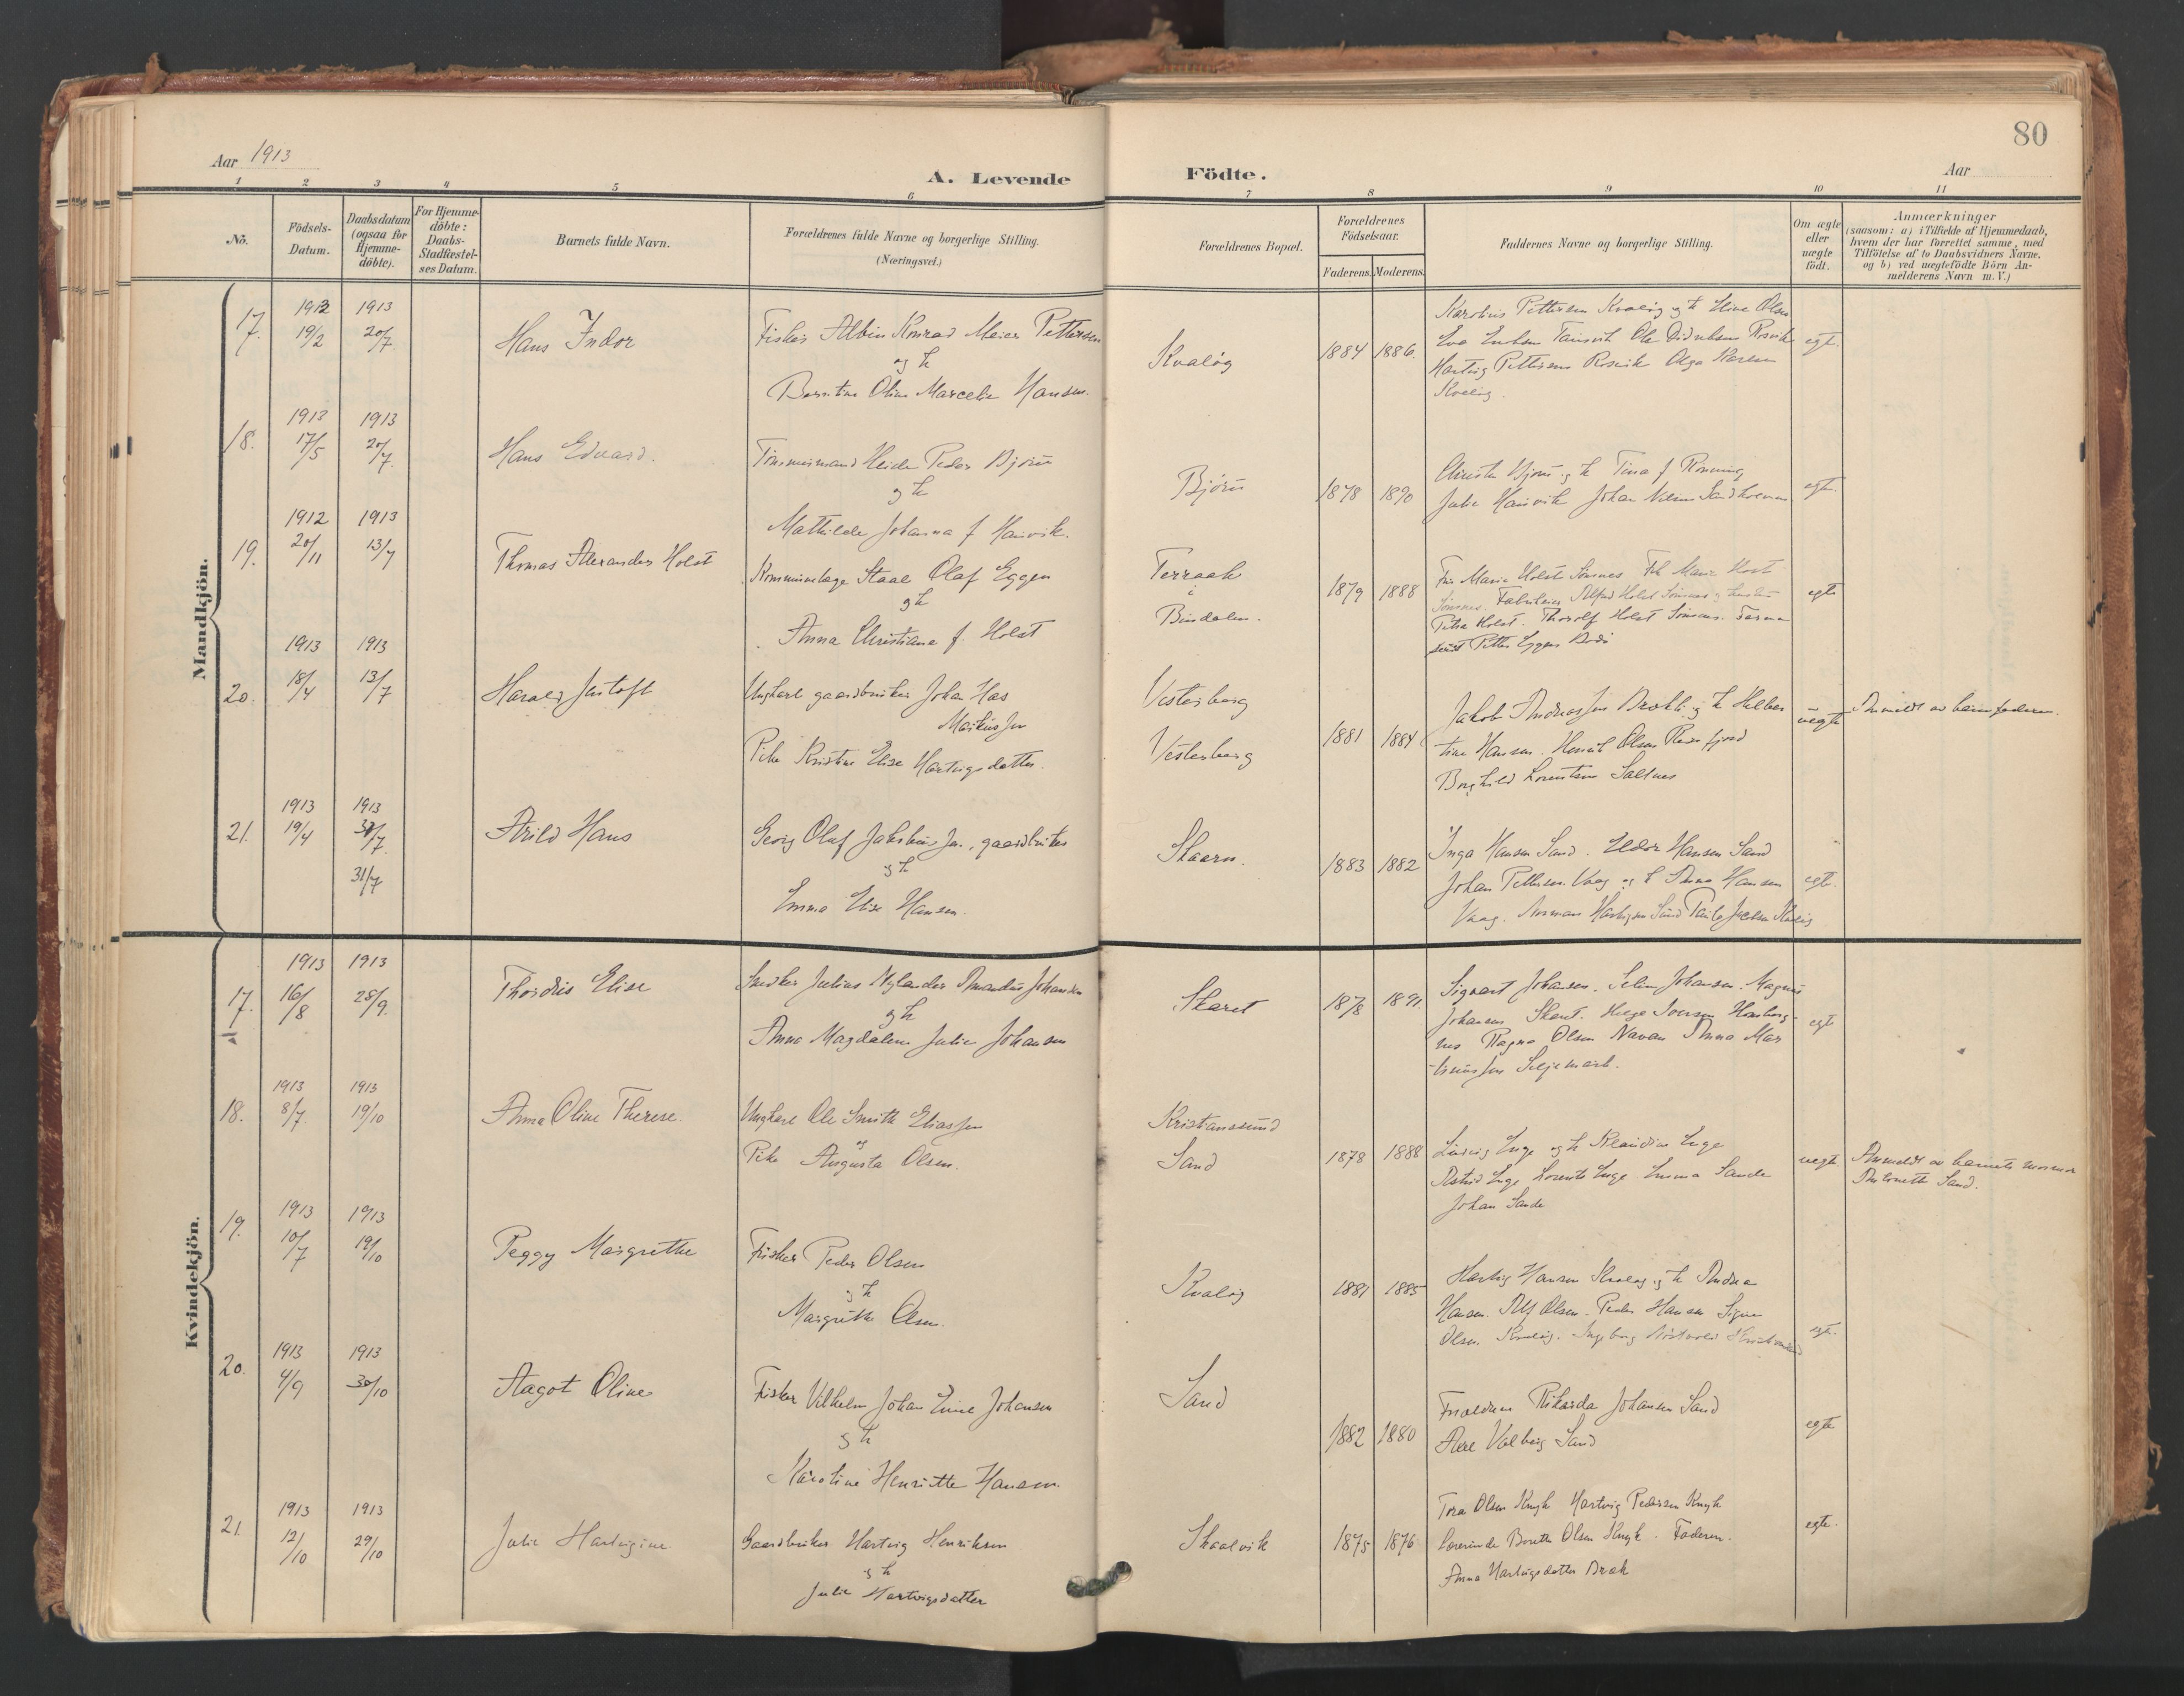 80
Aar 1913
A. Levende Födte.
Aar
1 2 3 4 5 6 7 8 9 10 11
No.
Födsels-Datum.
Daabsdatum (ogsaa for Hjemme-döbte).
For Hjemme-döbte: Daabs-Stadfæstel-ses Datum.
Barnets fulde Navn.
Forældrenes fulde Navne og borgerlige Stilling.
(Næringsvei.)
Forældrenes Bopæl.
Forældrenes Födselsaar.
Faderens. Moderens.
Faddernes Navne og borgerlige Stilling.
Om ægte eller uægte födt.
Anmærkninger
(saasom: a) i Tilfælde af Hjemmedaab,
hvem der har forrettet samme, med
Tilföielse af to Daabsvidners Navne,
og b) ved uægtefödte Börn An-
melderens Navn m. V.)
Mandkjön.
17. 1912 19/2 1913 20/7
Hans Indor
Fisker Albin Konrad Meier Pettersen
og h
Oline Marcelie Hansen.
Kvaløy
1884 1886.
Karolius Pettersen Kvaløy og h Oline Olsen
Eva Ole Rosvik
Hartvig Pettersen Rosvik Olga Karlsen
Kvaløy.
egt.
18. 1913 17/5 1913 20/7
Hans Edvard.
Tömmermand Peder Björu
og h
Mathilde Johanna f Hamvik.
Björu
1878 1890
og h Tina f Rönning
Julie Johan
egte.
19. 1912 20/11 1913 13/7
Thomas Alexander Holst
Kommunelæge Olaf Eggen
og h
Anna Christiane f. Holst
Terraak
i
Bindalen.
1879 1888
Fru Marie Holst Sömnes Frk Marie Holst
Sömnes. Fabrikeier Alfred Holst Sömnes og hustru
Petra Holst. Thorolf Holst Sömnes. Farma
ceut Petter Eggen Bodö
egte
20. 1913 18/4 1913 13/7
Harald Justoft
Ungkarl gaardbruker Johan Has
Markussen
Pike Kristine Elise Hartvigsdatter.
Vesterberg
Vesterberg
1881 1884
Jakob Andreassen og h Helber
tine Hansen. Henrik Olsen
Borghild Lorentsen Saltnes
uegte
Anmeldt av barnefaderen.
21. 1913 19/4 1913 30/7
31/7
Arild Hans
Georg Oluf Jakobsen, gaardbruker
og h
Emma Elise Hansen
Skaren.
1883 1882
Inga Hansen Sand. Hansen Sand
Johan Pettersen Vaag og h Anna Hansen
Vaag. Hartvigsen Sand
egte.
Kvindekjön.
17. 1913 16/8 1913 28/9.
Thordis Elise
Snedker Julius Nylander Amandus Johansen
og h
Anna Magdalene Julie Johansen
Skaret
1878 1891.
Sigvart Johansen. Seline Johansen. Magnus
Johansen Skaret. Iversen
nes Ragna Olsen Navan Anna Mar
tinussen Seljemark.
egt
18. 1913 8/7 1913 19/10
Anna Oline Therese.
Ungkarl Ole Smith Eliassen
og
Pike Augusta Olsen.
Kristianssund
Sand
1878 1888
Ludvig Enge og h Klaudine Enge
Astrid Enge Lorents Enge Emma Sande
Johan Sande
uegte
Anmeldt av barnets mormor
Antonette Sand.
19. 1913 10/7 1913 19/10
Peggy Margrethe
Fisker Peder Olsen
og h
Margrethe Olsen.
Kvaløy
1881 1885
Hartvig Hansen Kvaløy og h Andrea
Hansen. Alf Olsen. Peder Hansen Signe
Olsen Kvaløy. Ingeborg
egt.
20. 1913 4/9 1913 30/10
Aagot Oline
Fisker Vilhelm Johan Emil Johansen
og h
Karoline Henriette Hansen.
Sand
1882 1880
Forældrene Rikarda Johansen Sand
Valborg Sand
egte
21. 1913 12/10 1913 29/10
Julie Hartvigine
Gaardbruker Hartvig Henriksen
og h
Julie Hartvigsdatter
Skaalvik
1875 1876
Tora Olsen Hartvig Pedersen
Lærerinde Olsen. Faderen.
Anna Hartvigsdatter
egte.